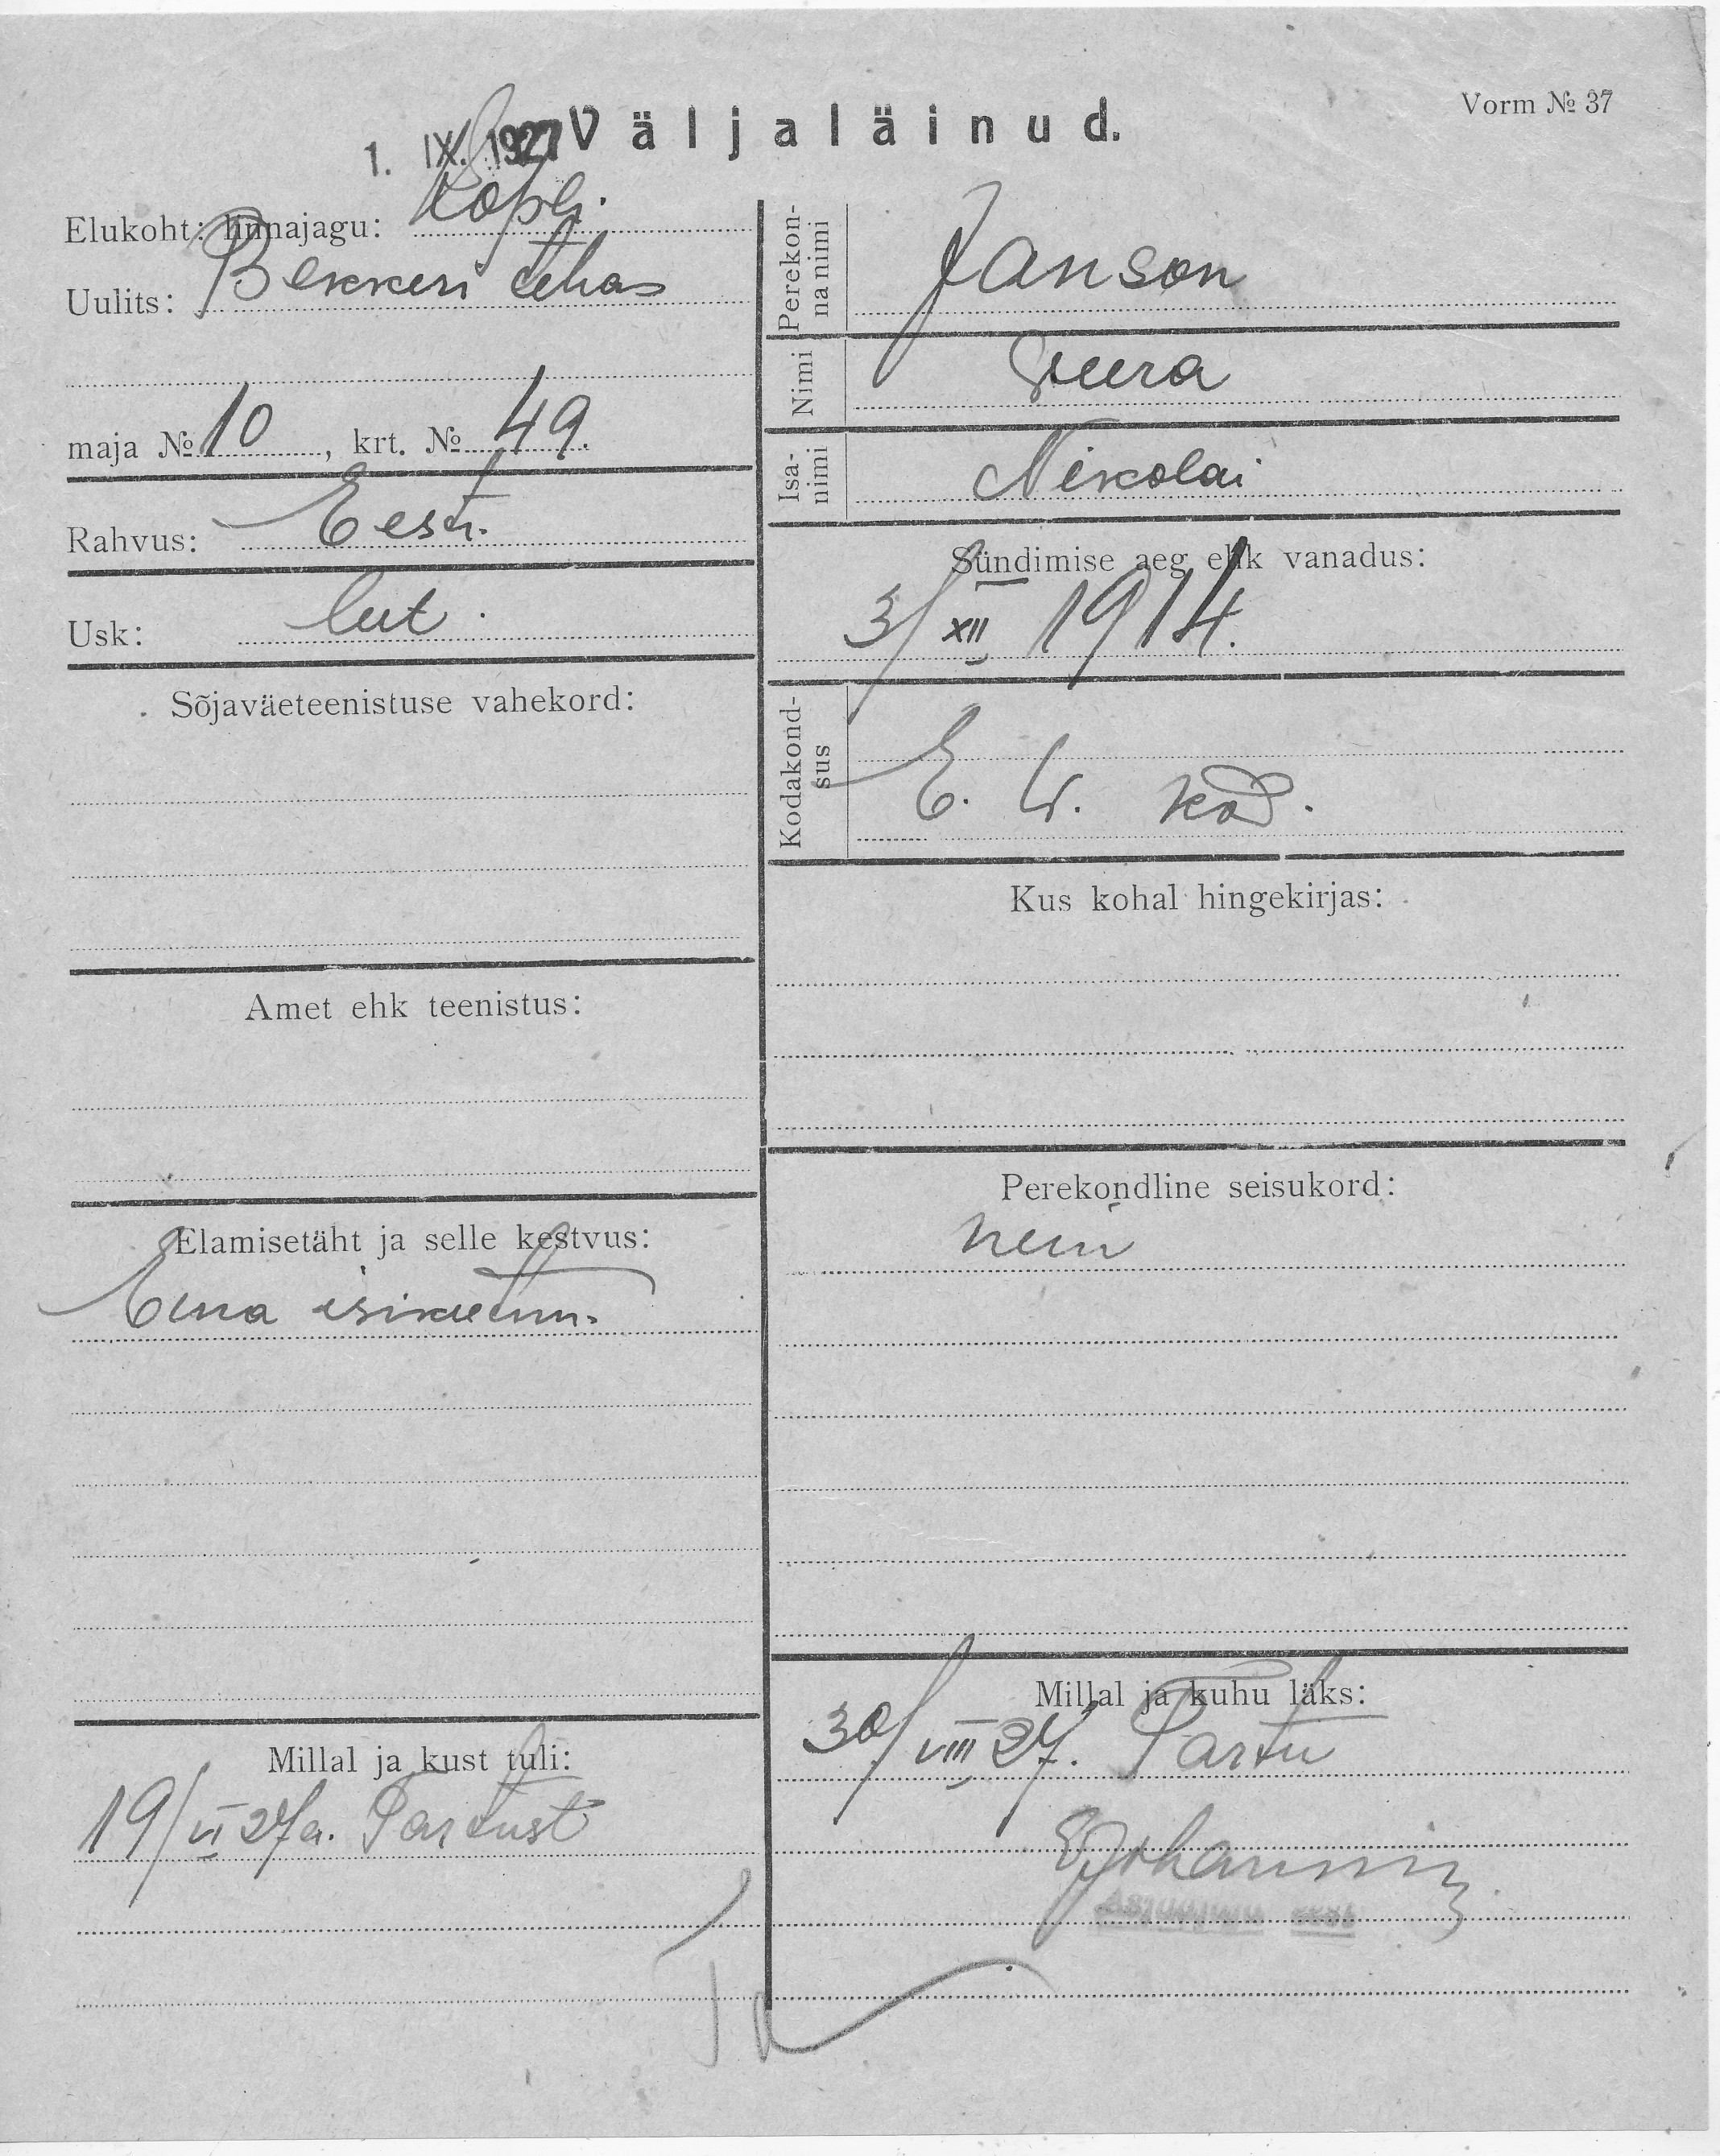 Vorm № 37
1. IX. 1927 Väljaläinud.
Elukoht: linnajagu: Kopli.
Uulits: Bekkeri tehas
maja № 10, krt. № 49.
Rahvus: Eesti.
Usk: lut.
Sõjaväeteenistuse vahekord:
Amet ehk teenistus:
Elamisetäht ja selle kestvus:
Ema isikutun.
Millal ja kust tuli:
19/VI 27 a. Tartust
Perekonna nimi
Janson
Nimi
Veera
Isa-nimi
Nikolai
Sündimise aeg ehk vanadus:
3/XII 1914.
Kodakondsus
E. W. kod.
Kus kohal hingekirjas:
Perekondline seisukord:
Millal ja kuhu läks:
30/VIII 27. Tartu